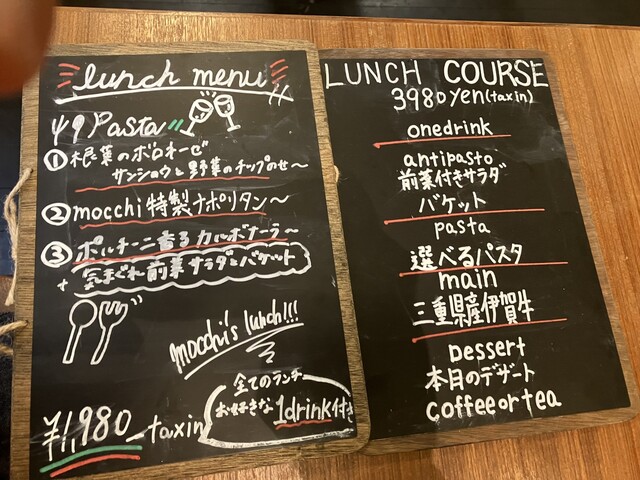 lunch menu
Pasta
① 根菜のボロネーゼ
サンショウと野菜のチップのせ〜
② mocchi特製ナポリタン〜
③ ポルチーニ香るカルボナーラ〜
+ 気まぐれ前菜サラダとバケット
mocchi's lunch!!!
全てのランチ
お好きな1drink付き
¥1,980 taxin
LUNCH COURSE
3980yen(taxin)
onedrink
antipasto
前菜付きサラダ
バケット
pasta
選べるパスタ
main
三重県産伊賀牛
Dessert
本日のデザート
coffee or tea